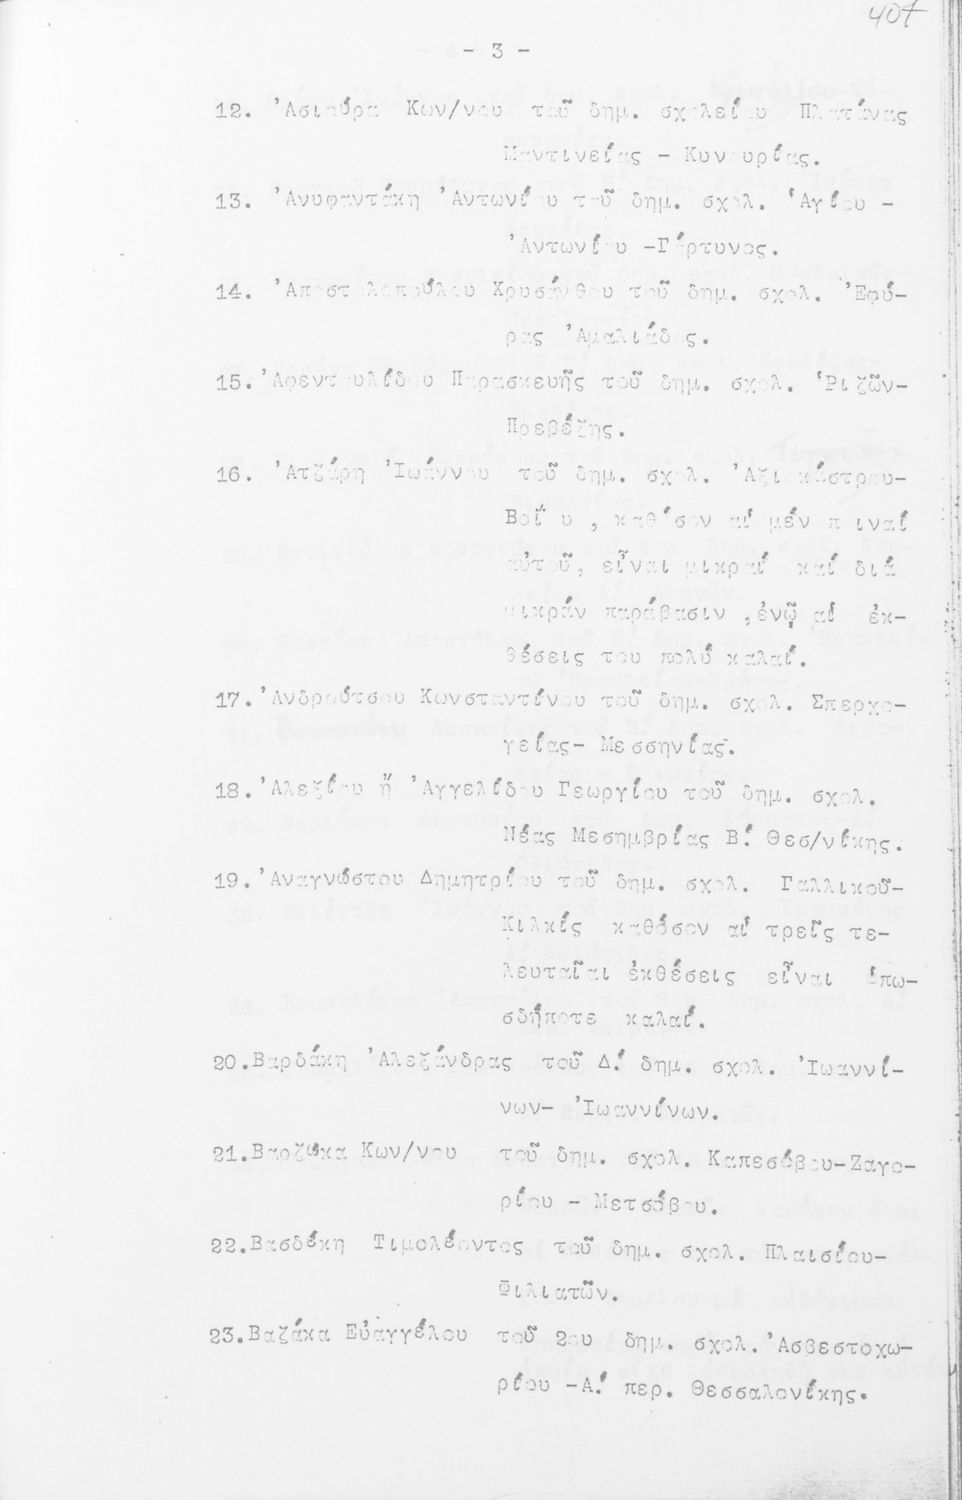 407
- 3 -
12. Ἀσιούρα Κων/νου τοῦ δημ. σχολείου Πλατάνας
Μαντινείας - Κυνουρίας.
13. Ἀνυφαντάκη Ἀντωνίου τοῦ δημ. σχολ. Ἁγίου -
Ἀντωνίου -Γόρτυνος.
14. Ἀποστολοπούλου Χρυσάνθου τοῦ δημ. σχολ. Ἐφύ-
ρας Ἀμαλιάδος.
15. Ἀφεντουλίδου Παρασκευῆς τοῦ δημ. σχολ. Ῥιζῶν-
Πρεβέζης.
16. Ἀτζάρη Ἰωάννου τοῦ δημ. σχολ. Ἀξιοκάστρου-
Βοΐου, καθόσον αἱ μέν ποιναί
αὐτοῦ, εἶναι μικραί καί διά
μικράν παράβασιν ,ἐνῷ αἱ ἐκ-
θέσεις του πολύ καλαί.
17. Ἀνδρούτσου Κωνσταντίνου τοῦ δημ. σχολ. Σπερχο-
γείας- Μεσσηνίας.
18. Ἀλεξίου ἤ Ἀγγελίδου Γεωργίου τοῦ δημ. σχολ.
Νέας Μεσημβρίας Β! Θεσ/νίκης.
19. Ἀναγνώστου Δημητρίου τοῦ δημ. σχολ. Γαλλικοῦ-
Κιλκίς καθόσον αἱ τρεῖς τε-
λευταῖαι ἐκθέσεις εἶναι ὁπω-
σδήποτε καλαί.
20. Βαρδάκη Ἀλεξάνδρας τοῦ Δ! δημ. σχολ. Ἰωαννί-
νων- Ἰωαννίνων.
21. Βαρζώκα Κων/νου τοῦ δημ. σχολ. Καπεσόβου-Ζαγο-
ρίου - Μετσόβου.
22. Βασδέκη Τιμολέοντος τοῦ δημ. σχολ. Πλαισίου-
Φιλιατῶν.
23. Βαζάκα Εὐαγγέλου τοῦ 2ου δημ. σχολ. Ἀσβεστοχω-
ρίου -Α! περ. Θεσσαλονίκης.